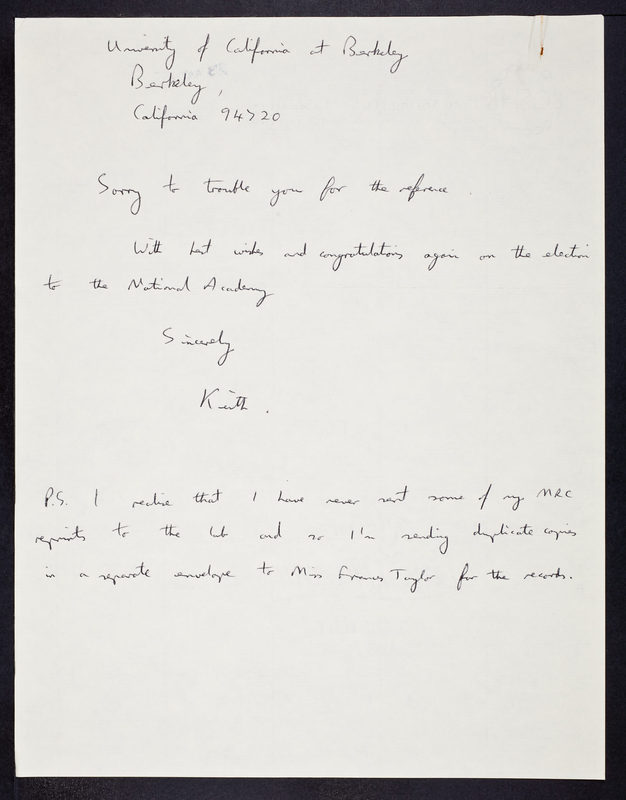 University of California at Berkeley
Berkeley,
California 94720
Sorry to trouble you for the reference.
With best wishes and congratulations again on the election
to the National Academy
Sincerely
Keith.
P.S. I realise that I have never sent some of my MRC
reprints to the lab and so I'm sending duplicate copies
in a separate envelope to Miss Frances Taylor for the records.